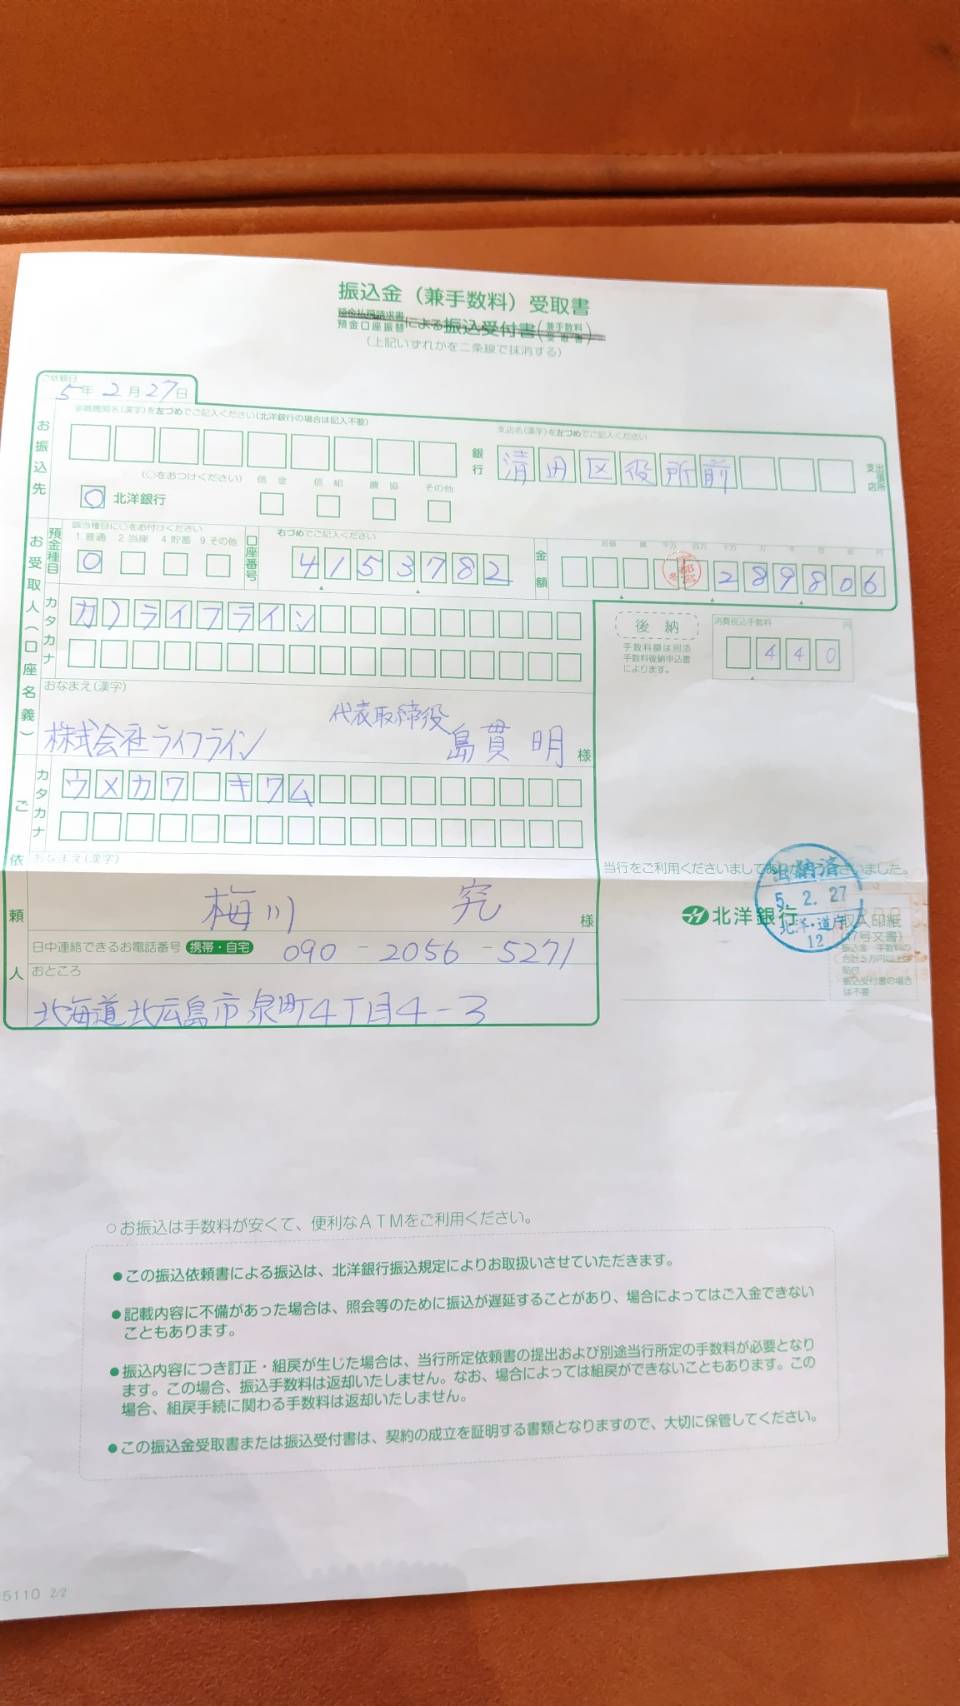 振込金（兼手数料）受取書
預金払戻請求書
預金口座振替による振込受付書（兼手数料受取書）
（上記いずれかを二条線で抹消する）
ご依頼日
5年2月27日
お振込先
金融機関名（漢字）を左づめでご記入ください（北洋銀行の場合は記入不要）
支店名（漢字）を左づめでご記入ください
銀行
清田区役所前
支店
出張所
（○をおつけください）
信金 信組 農協 その他
○ 北洋銀行
お受取人（口座名義）
預金種目
該当種目に○をお付けください
1.普通 2 当座 4 貯蓄 9 その他
○
口座番号
右づめでご記入ください
4153782
金額
289806
カタカナ
カ）ライフライン
後納
手数料額は別途
手数料後納申込書
によります。
消費税込手数料 円
440
おなまえ（漢字）
株式会社ライフライン 代表取締役 島貫明 様
ご依頼人
カタカナ
ウメカワ キワム
おなまえ（漢字）
梅川 究 様
日中連絡できるお電話番号 携帯・自宅 090-2056-5271
おところ
北海道北広島市泉町4丁目4-3
当行をご利用くださいましてありがとうございました。
北洋銀行
出納済
5.2.27
北洋・道庁
12
収入印紙
(17号文書)
振込金 手数料の
合計5万円以上
貼付
振込受付書の場合
は不要
○お振込は手数料が安くて、便利なＡＴＭをご利用ください。
●この振込依頼書による振込は、北洋銀行振込規定によりお取扱いさせていただきます。
●記載内容に不備があった場合は、照会等のために振込が遅延することがあり、場合によってはご入金できない
こともあります。
●振込内容につき訂正・組戻が生じた場合は、当行所定依頼書の提出および別途当行所定の手数料が必要となり
ます。この場合、振込手数料は返却いたしません。なお、場合によっては組戻ができないこともあります。この
場合、組戻手続に関わる手数料は返却いたしません。
●この振込金受取書または振込受付書は、契約の成立を証明する書類となりますので、大切に保管してください。
5110 2/2